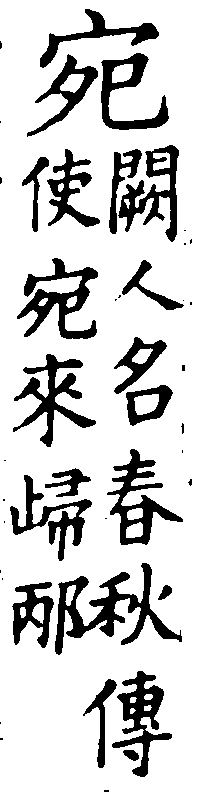 宛
闕人名春秋傳
使宛來㱕邴